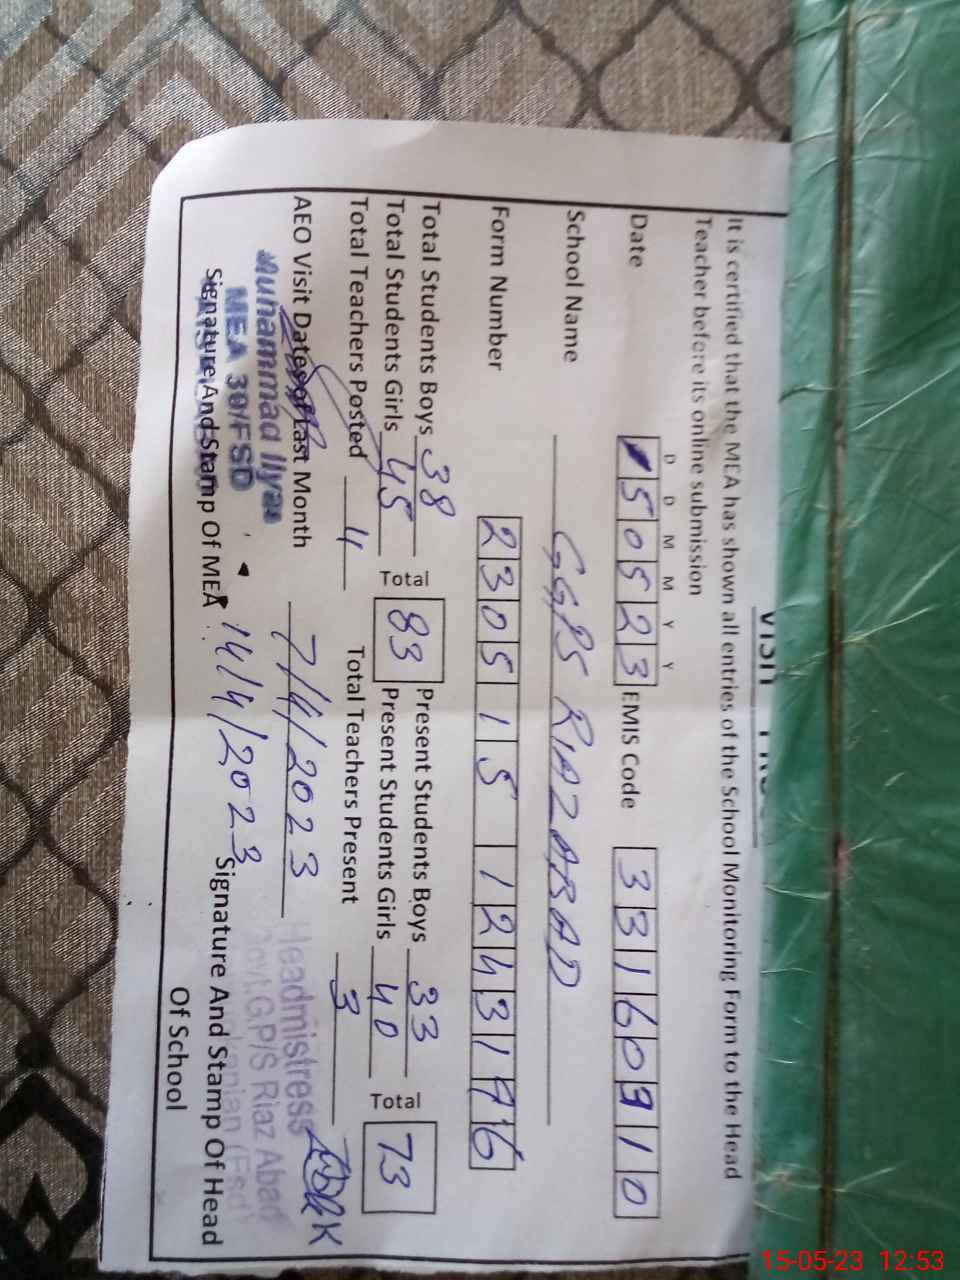 It is certified that the MEA has shown all entries of the School Monitoring Form to the Head
Teacher before its online submission
D D M M Y Y
Date 150523 EMIS Code 33160910
School Name GGPS RIAZ ABAD
Form Number 230515 1243196
Total Students Boys 38 Total 83 Present Students Boys 33 Total 73
Total Students Girls 45 Present Students Girls 40
Total Teachers Posted 4 Total Teachers Present 3
AEO Visit Dates of Last Month 7/4/2023
14/4/2023
Muhammad Ilyas
MEA 30/FSD
Signature And Stamp Of MEA
Headmistress
Govt.GP/S Riaz Abad
Signature And Stamp Of Head
Of School
15-05-23 12:53